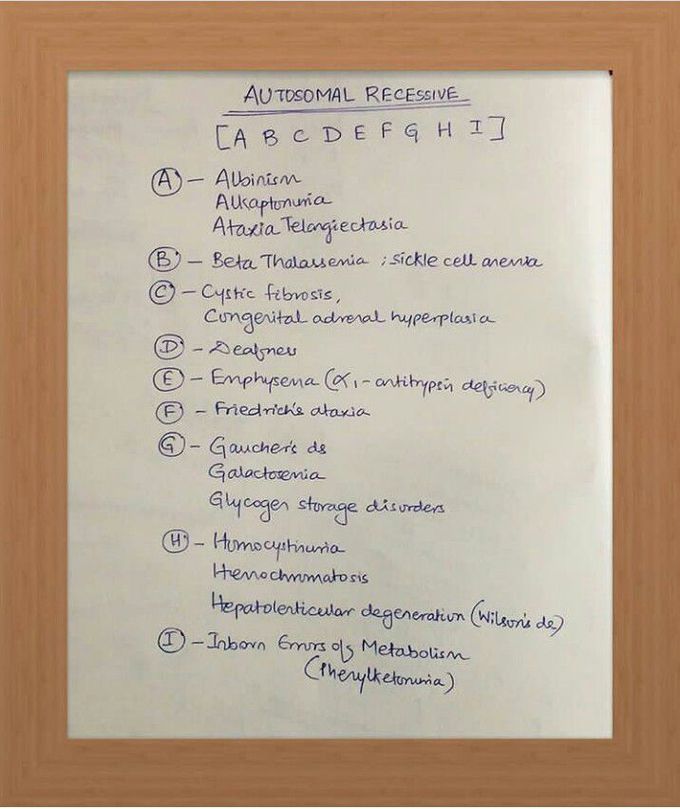 AUTOSOMAL RECESSIVE
[A B C D E F G H I]
A - Albinism
Alkaptonuria
Ataxia Telangiectasia
B - Beta Thalassemia ; sickle cell anemia
C - Cystic fibrosis,
Congenital adrenal hyperplasia
D - Deafness
E - Emphysema (α1 - antitrypsin deficiency)
F - Friedrich's ataxia
G - Gaucher's ds
Galactosemia
Glycogen storage disorders
H - Homocystinuria
Hemochromatosis
Hepatolenticular degeneration (Wilson's ds)
I - Inborn Errors of Metabolism
(Phenylketonuria)